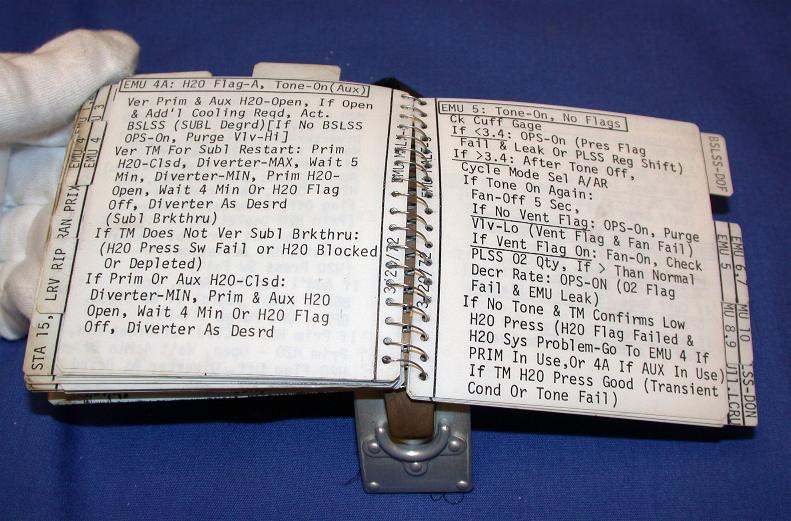 EMU 4A: H2O Flag-A, Tone-On(Aux)
Ver Prim & Aux H2O-Open, If Open
& Add'l Cooling Reqd, Act.
BSLSS (SUBL Degrd)[If No BSLSS
OPS-On, Purge Vlv-Hi]
Ver TM For Subl Restart: Prim
H2O-Clsd, Diverter-MAX, Wait 5
Min, Diverter-MIN, Prim H2O-
Open, Wait 4 Min Or H2O Flag
Off, Diverter As Desrd
(Subl Brkthru)
If TM Does Not Ver Subl Brkthru:
(H2O Press Sw Fail or H2O Blocked
Or Depleted)
If Prim Or Aux H2O-Clsd:
Diverter-MIN, Prim & Aux H2O
Open, Wait 4 Min Or H2O Flag
Off, Diverter As Desrd
EMU 4
STA 15,
LRV RIP
3/20/72
EMU 5: Tone-On, No Flags
Ck Cuff Gage
If <3.4: OPS-On (Pres Flag
Fail & Leak Or PLSS Reg Shift)
If >3.4: After Tone Off,
Cycle Mode Sel A/AR
If Tone On Again:
Fan-Off 5 Sec,
If No Vent Flag: OPS-On, Purge
Vlv-Lo (Vent Flag & Fan Fail)
If Vent Flag On: Fan-On, Check
PLSS O2 Qty, If > Than Normal
Decr Rate: OPS-ON (O2 Flag
Fail & EMU Leak)
If No Tone & TM Confirms Low
H2O Press (H2O Flag Failed &
H2O Sys Problem-Go To EMU 4 If
PRIM In Use,Or 4A If AUX In Use)
If TM H2O Press Good (Transient
Cond Or Tone Fail)
3/20/72
BSLSS-DOF
EMU 5
EMU 6,7
MU 8,9
MU 10